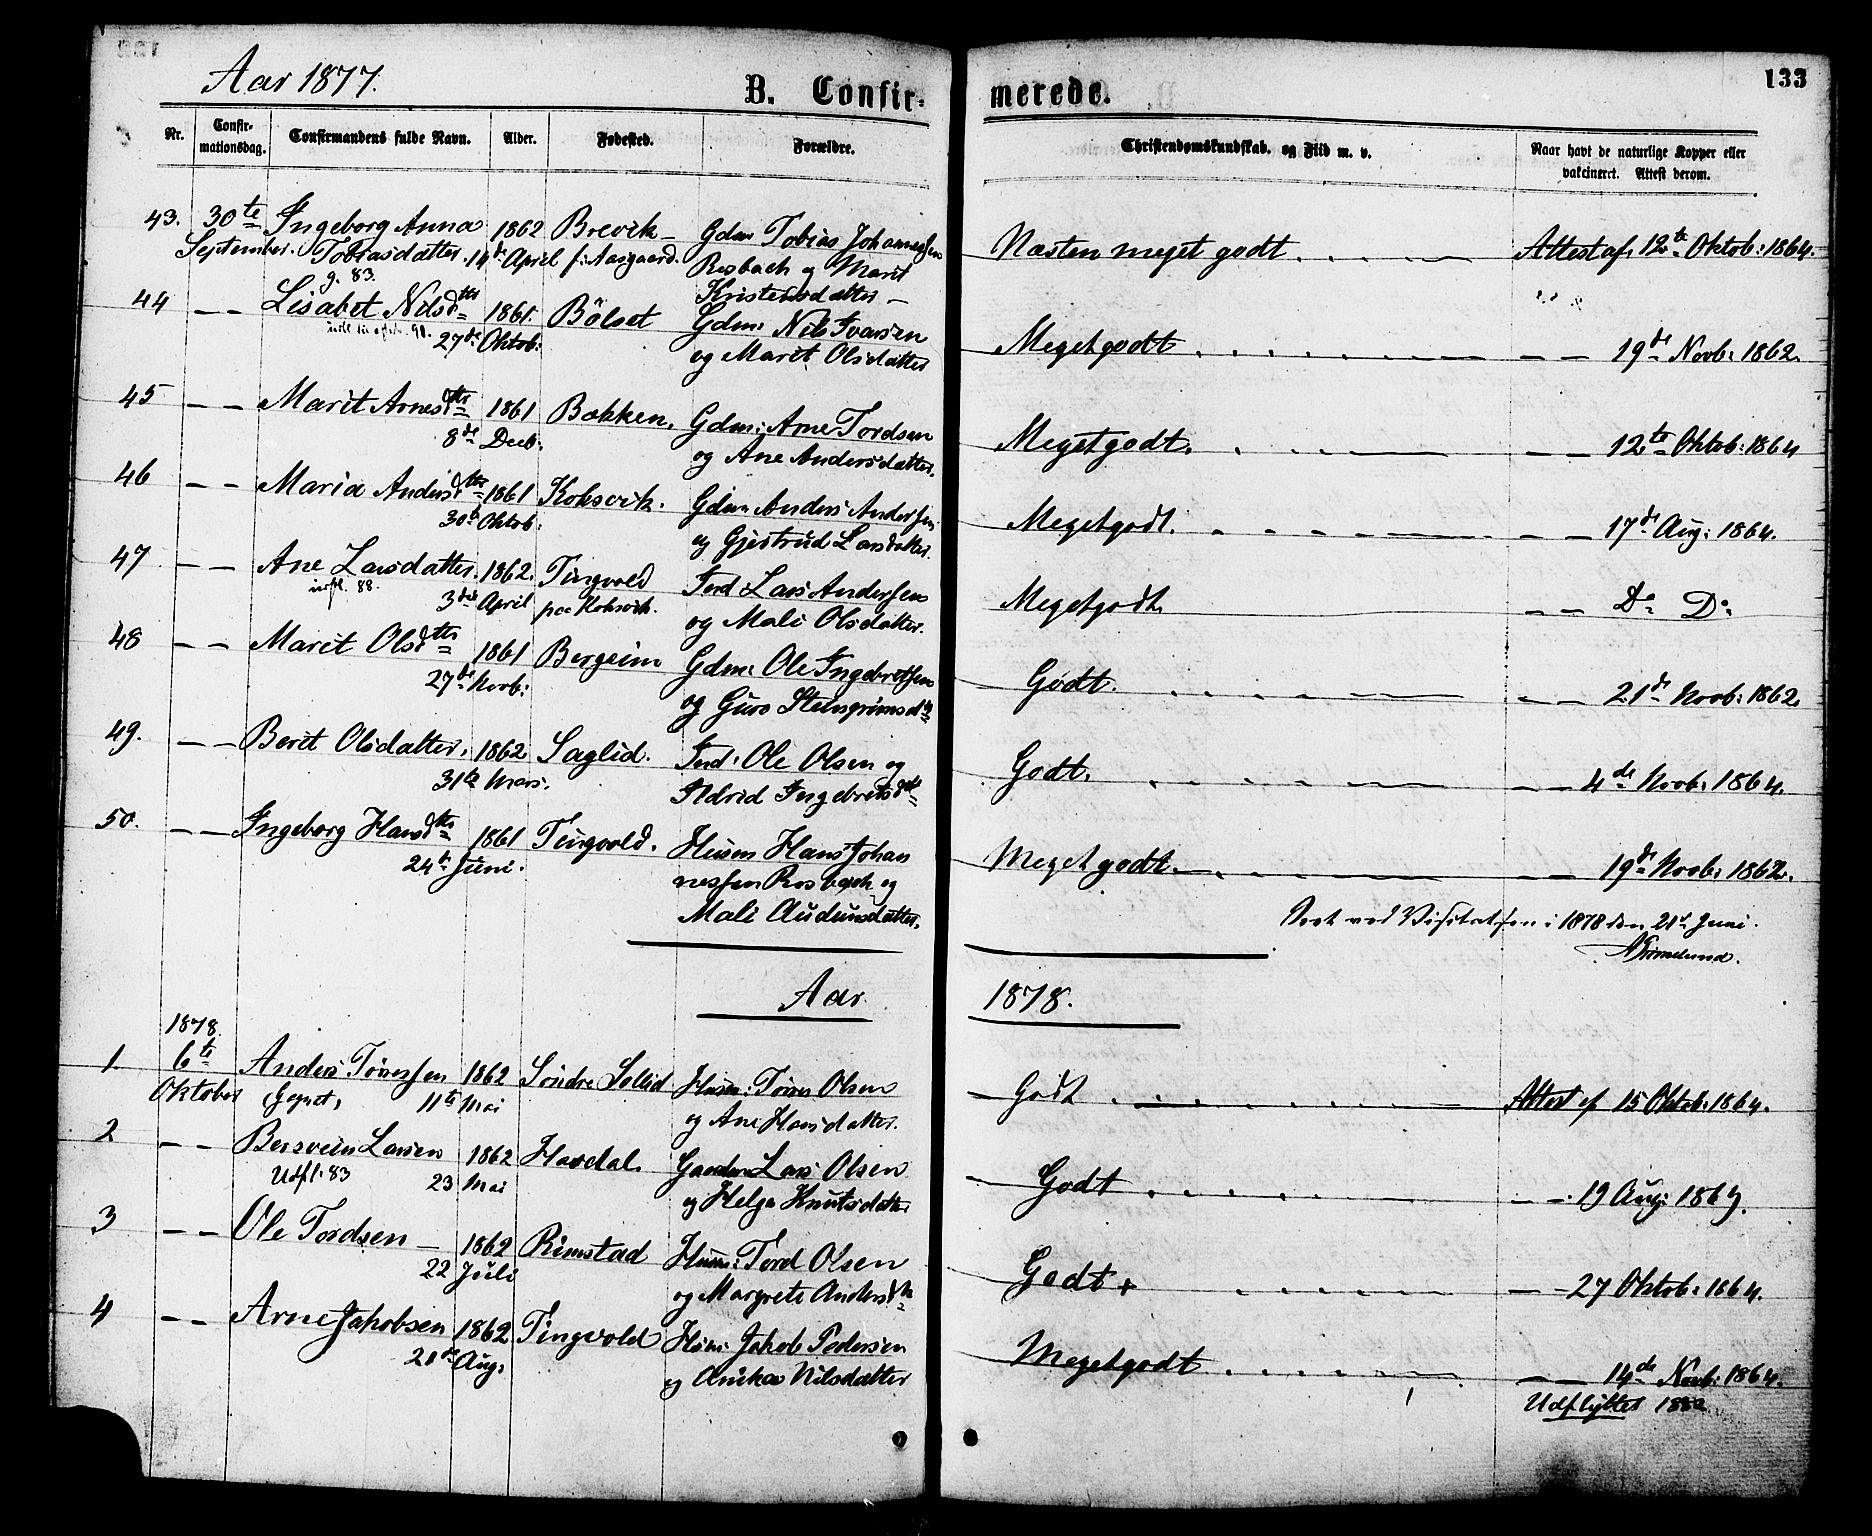 Aar 1877.
B. Confir- merede.
133
Nr. Confirmationsdag. Confirmandens fulde Navn. Alder. Fødested. Forældre. Christendomskundskab. og Flid m. v. Naar havt de naturlige Kopper eller vakcineret. Attest derom.
43. 30te Ingeborg Anna 1862 Brevik Gdm Tobias Johannesen Næsten meget godt Attest af 12te Oktob: 1864.
September. Tobiasdatter. 14de April f. Aasgaard. Rosbach og Marit
g. 83. Kristensdatter
44 — — Lisabet Nilsdtr 1861. Bölset Gdm: Nils Ivarsen Megetgodt — — 19de Novb: 1862.
90. 27de Oktob: og Marit Olsdatter
45 — — Marit Arnesdtr 1861 Bakken. Gdm: Arne Tordsen Megetgodt. — — 12te Oktob: 1864
8de Decb: og Ane Andersdatter.
46 — — Maria Andersdtr 1861 Koksvik. Gdm Anders Andersen Megetgodt. — — 17de Aug: 1864.
30te Oktob: og Gjertrud Larsdatter.
47 — — Ane Larsdatter. 1862. Tingvold Ind Lars Andersen Megetgodt — — Do Do
indfl. 88. 3die April paa Koksvik. og Mali Olsdatter.
48 — — Marit Olsdtr 1861 Bergeim Gdm. Ole Ingebretsen Godt. — — 21de Novb: 1862.
27de Novb: og Guro Steingrimsdtr
49. — — Berit Olsdatter. 1862. Saglid. Ind. Ole Olsen og Godt. — — 4de Novb: 1864.
31te Mars. Adrid Ingebretsdtr
50. — — Ingeborg Hansdtr 1861 Tingvold. Husm Hans Johan Megetgodt. — — 19de Novb: 1862.
24de Juni. nessen Rosbach og
Mali Audunsdatter.
Seet ved Visitatsen i 1878 den 21de Juni.
Aar 1878.
1878.
1. 6te Anders Töressen 1862 Söndre Sollid Husm: Töres Olsen Godt Attest af 15 Oktob: 1864.
Oktober 11te Mai og Ane Hansdatter.
2 — — Bersvein Larsen 1862 Hardal. Gaardm Lars Olsen Godt — — 19 Aug: 1864.
Udfl: 83 23 Mai og Helga Knutsdatter
3 — — Ole Tordsen 1862 Rimstad Husm: Tord Olsen Godt + — — 27 Oktob: 1864.
22 Juli og Margrete Andersdtr
4 — — Arne Jakobsen 1862 Tingvold Husm: Jakob Pedersen Megetgodt — — 14de Novb: 1864.
21de Aug. og Anika Nilsdatter
Udflyttet